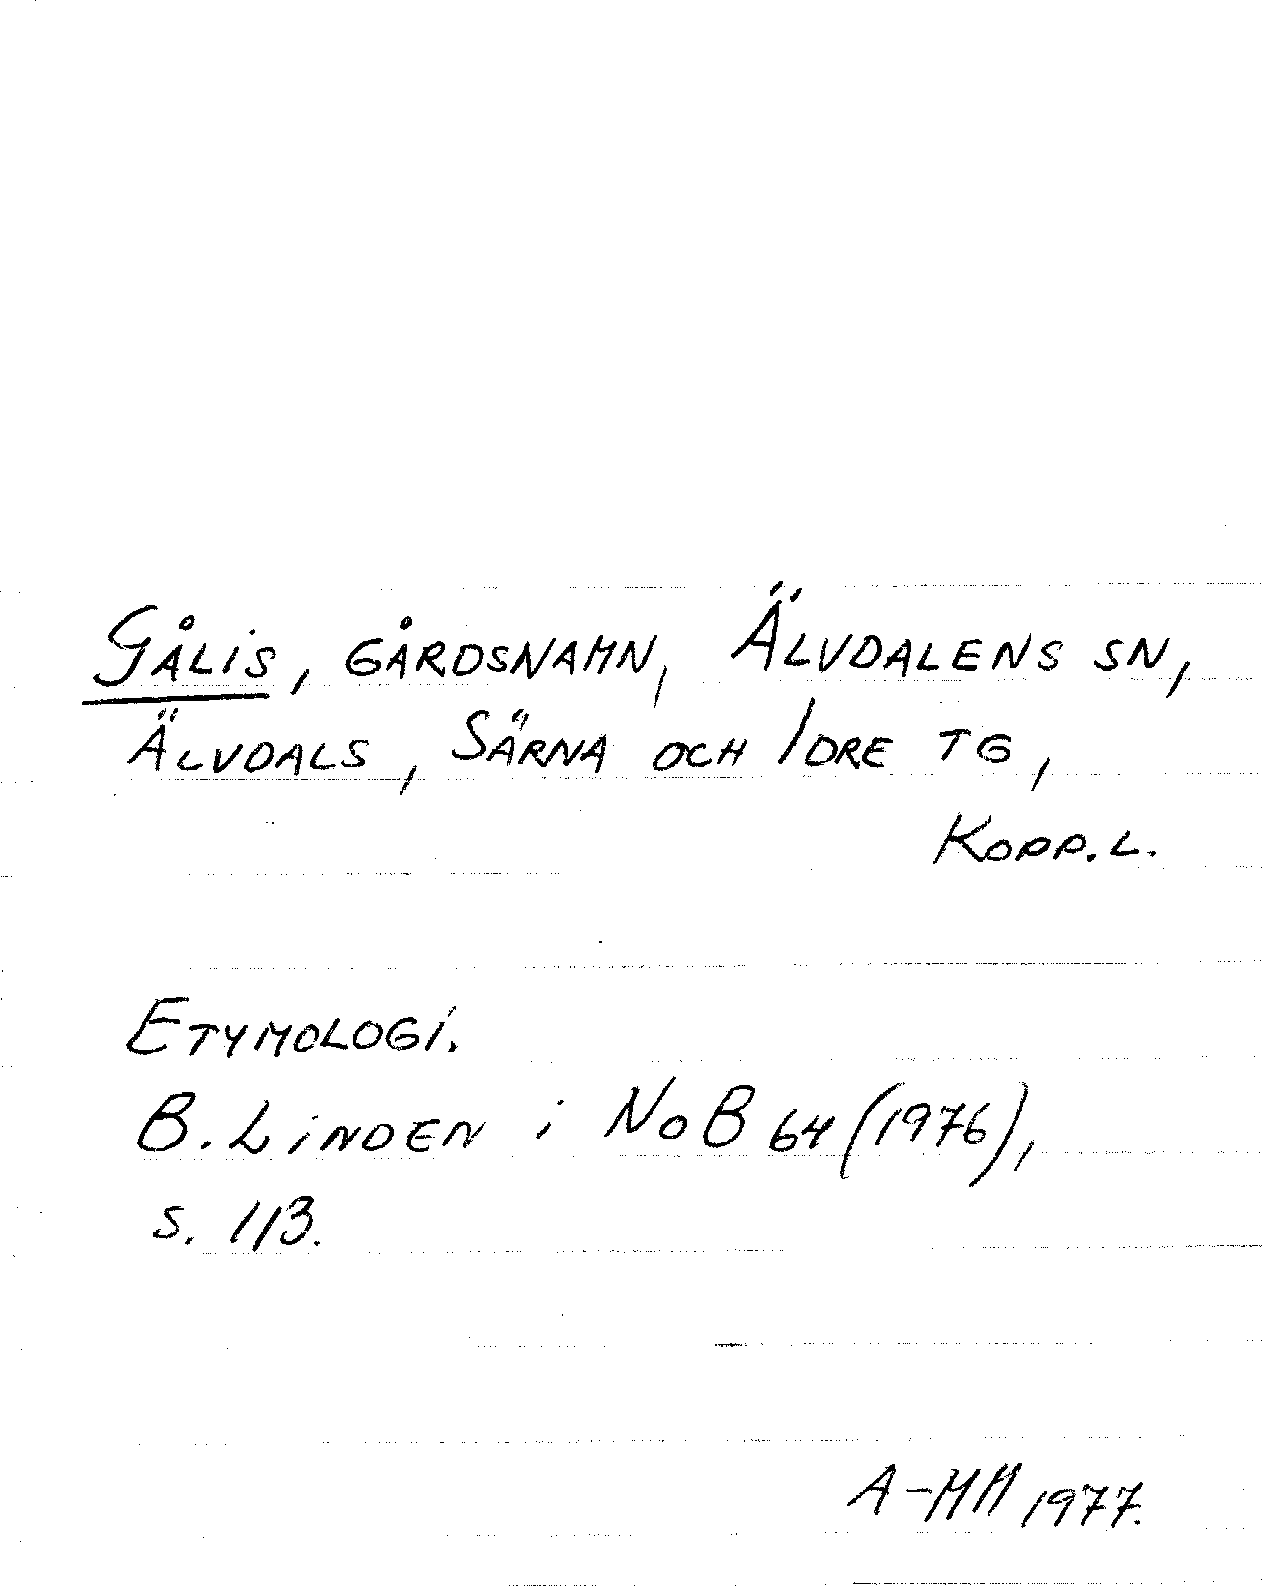 Gålis, gårdsnamn, Älvdalens sn,
Älvdals, Särna och Idre tg,
Kopp.l.
Etymologi.
B. Linden i NoB 64 (1976),
s. 113.
A-MM 1977.